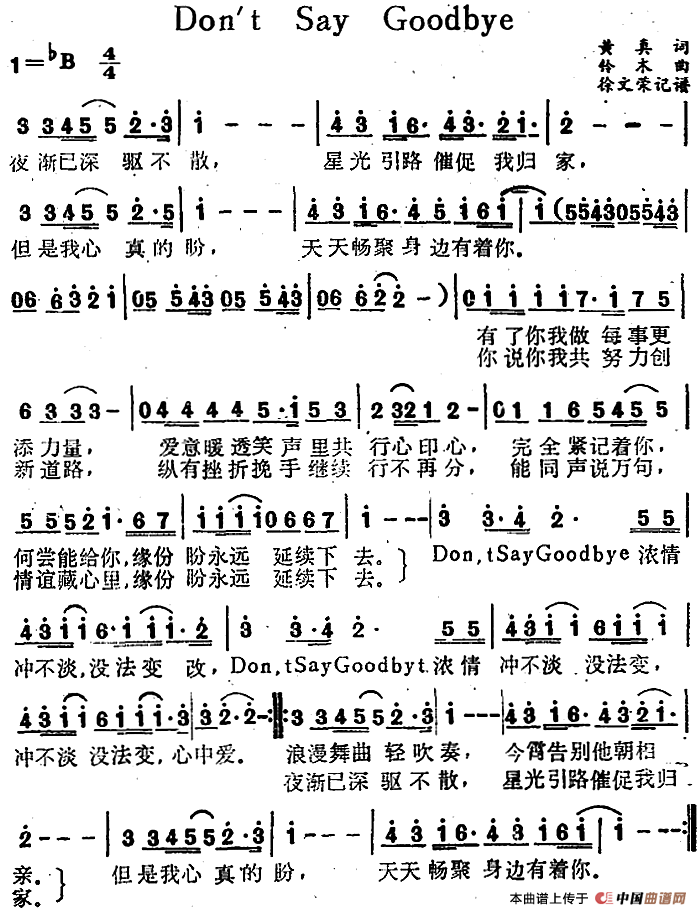 Don't Say Goodbye
1=♭B 4/4
黄真词
伶木曲
徐文荣记谱
3 3455 2·3 | 1 - - - | 43 16· 43· 21· | 2 - - -
夜渐已深 驱不散， 星光引路 催促 我归家，
3 3455 2·5 | 1 - - - | 43 16· 45 161 | 1 (554305543
但是我心 真的盼， 天天畅聚身边有着你。
06 6321 | 05 543 05 543 | 06 622 - ) | 01 1 1 17· 1 7 5
有了你我做 每事更
你说你我共 努力创
6 3 33 - | 04 44 45·1 53 | 23212 - | 01 16 5455
添力量， 爱意暖透笑声里共 行心印心， 完全紧记着你，
新道路， 纵有挫折挽手继续 行不再分， 能同声说万句，
55521·67 | 11110667 | 1 - - 3 3·4 2· 55
何尝能给你，缘份 盼永远 延续下 去。 Don,tSayGoodbye 浓情
情谊藏心里，缘份 盼永远 延续下 去。
4311 6·1 11·2 | 3 3·4 2· 55 | 4311 6111
冲不淡，没法变 改，Don,tSayGoodbyt 浓情 冲不淡 没法变，
4311 6111·3 | 32·2 - :‖: 3 3455 2·2 | 2 - - - | 43 16· 43 21·
冲不淡 没法变，心中爱。 浪漫舞曲 轻吹奏， 今霄告别他朝相
夜渐已深 驱不散， 星光引路催促我归
2 - - - | 3 3455 2·3 | 1 - - - | 43 16· 43 161 | 1 - - - :‖
亲。 但是我心 真的盼， 天天 畅聚 身边有着你。
家。
本曲谱上传于 中国曲谱网